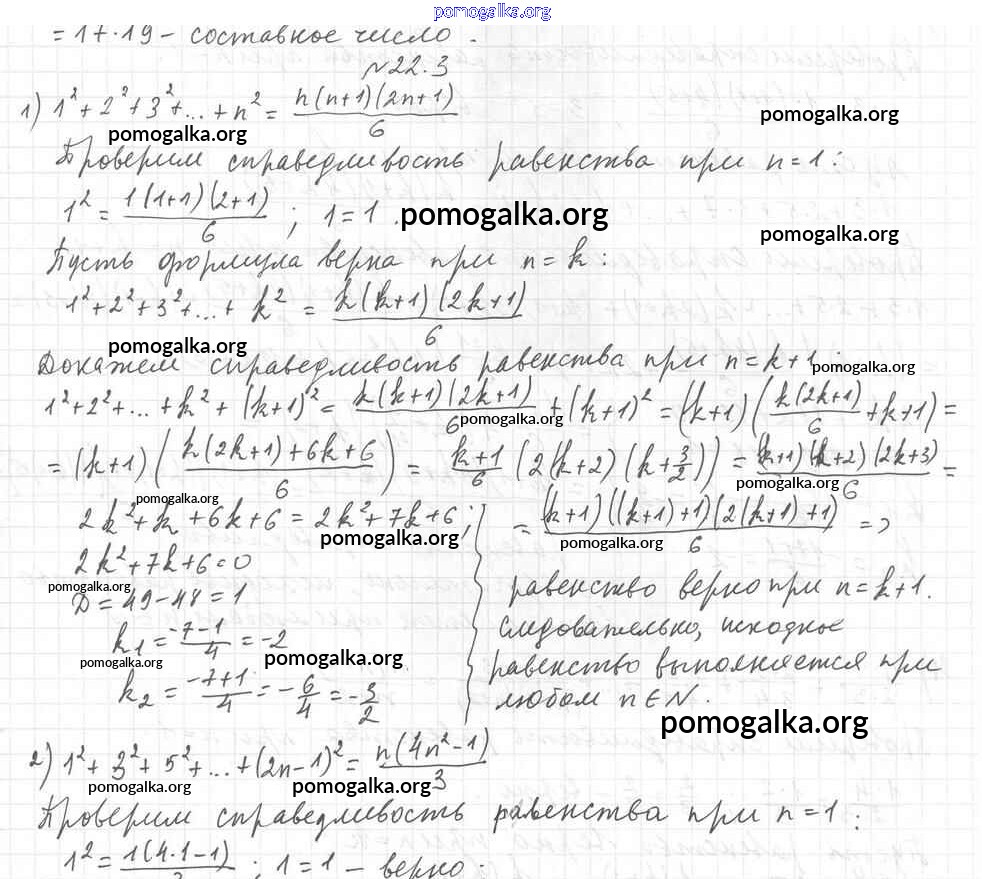 pomogalka.org
= 17·19 – составное число.
№22.3
1) 1² + 2² + 3² + ... + n² = n(n+1)(2n+1)/6
pomogalka.org
pomogalka.org
Проверим справедливость равенства при n=1:
1² = 1(1+1)(2+1)/6 ; 1=1.
pomogalka.org
pomogalka.org
Пусть формула верна при n=k:
1²+2²+3²+...+ k² = k(k+1)(2k+1)/6
pomogalka.org
Докажем справедливость равенства при n=k+1:
pomogalka.org
1²+2²+...+k²+(k+1)² = k(k+1)(2k+1)/6 + (k+1)² = (k+1)(k(2k+1)/6 + k+1) =
pomogalka.org
= (k+1)(k(2k+1)+6k+6/6) = k+1/6 (2(k+2)(k+3/2)) = (k+1)(k+2)(2k+3)/6 =
pomogalka.org
pomogalka.org
2k²+k+6k+6 = 2k²+7k+6;
= (k+1)((k+1)+1)(2(k+1)+1)/6 =>
pomogalka.org
pomogalka.org
2k²+7k+6=0
pomogalka.org
D = 49-48 = 1
k₁ = -7-1/4 = -2
pomogalka.org
pomogalka.org
k₂ = -7+1/4 = -6/4 = -3/2
равенство верно при n=k+1.
следовательно, исходное
равенство выполняется при
любом n∈N.
pomogalka.org
2) 1² + 3² + 5² + ... + (2n-1)² = n(4n²-1)/3
pomogalka.org
pomogalka.org
Проверим справедливость равенства при n=1:
1² = 1(4·1-1)/3 ; 1=1 – верно;